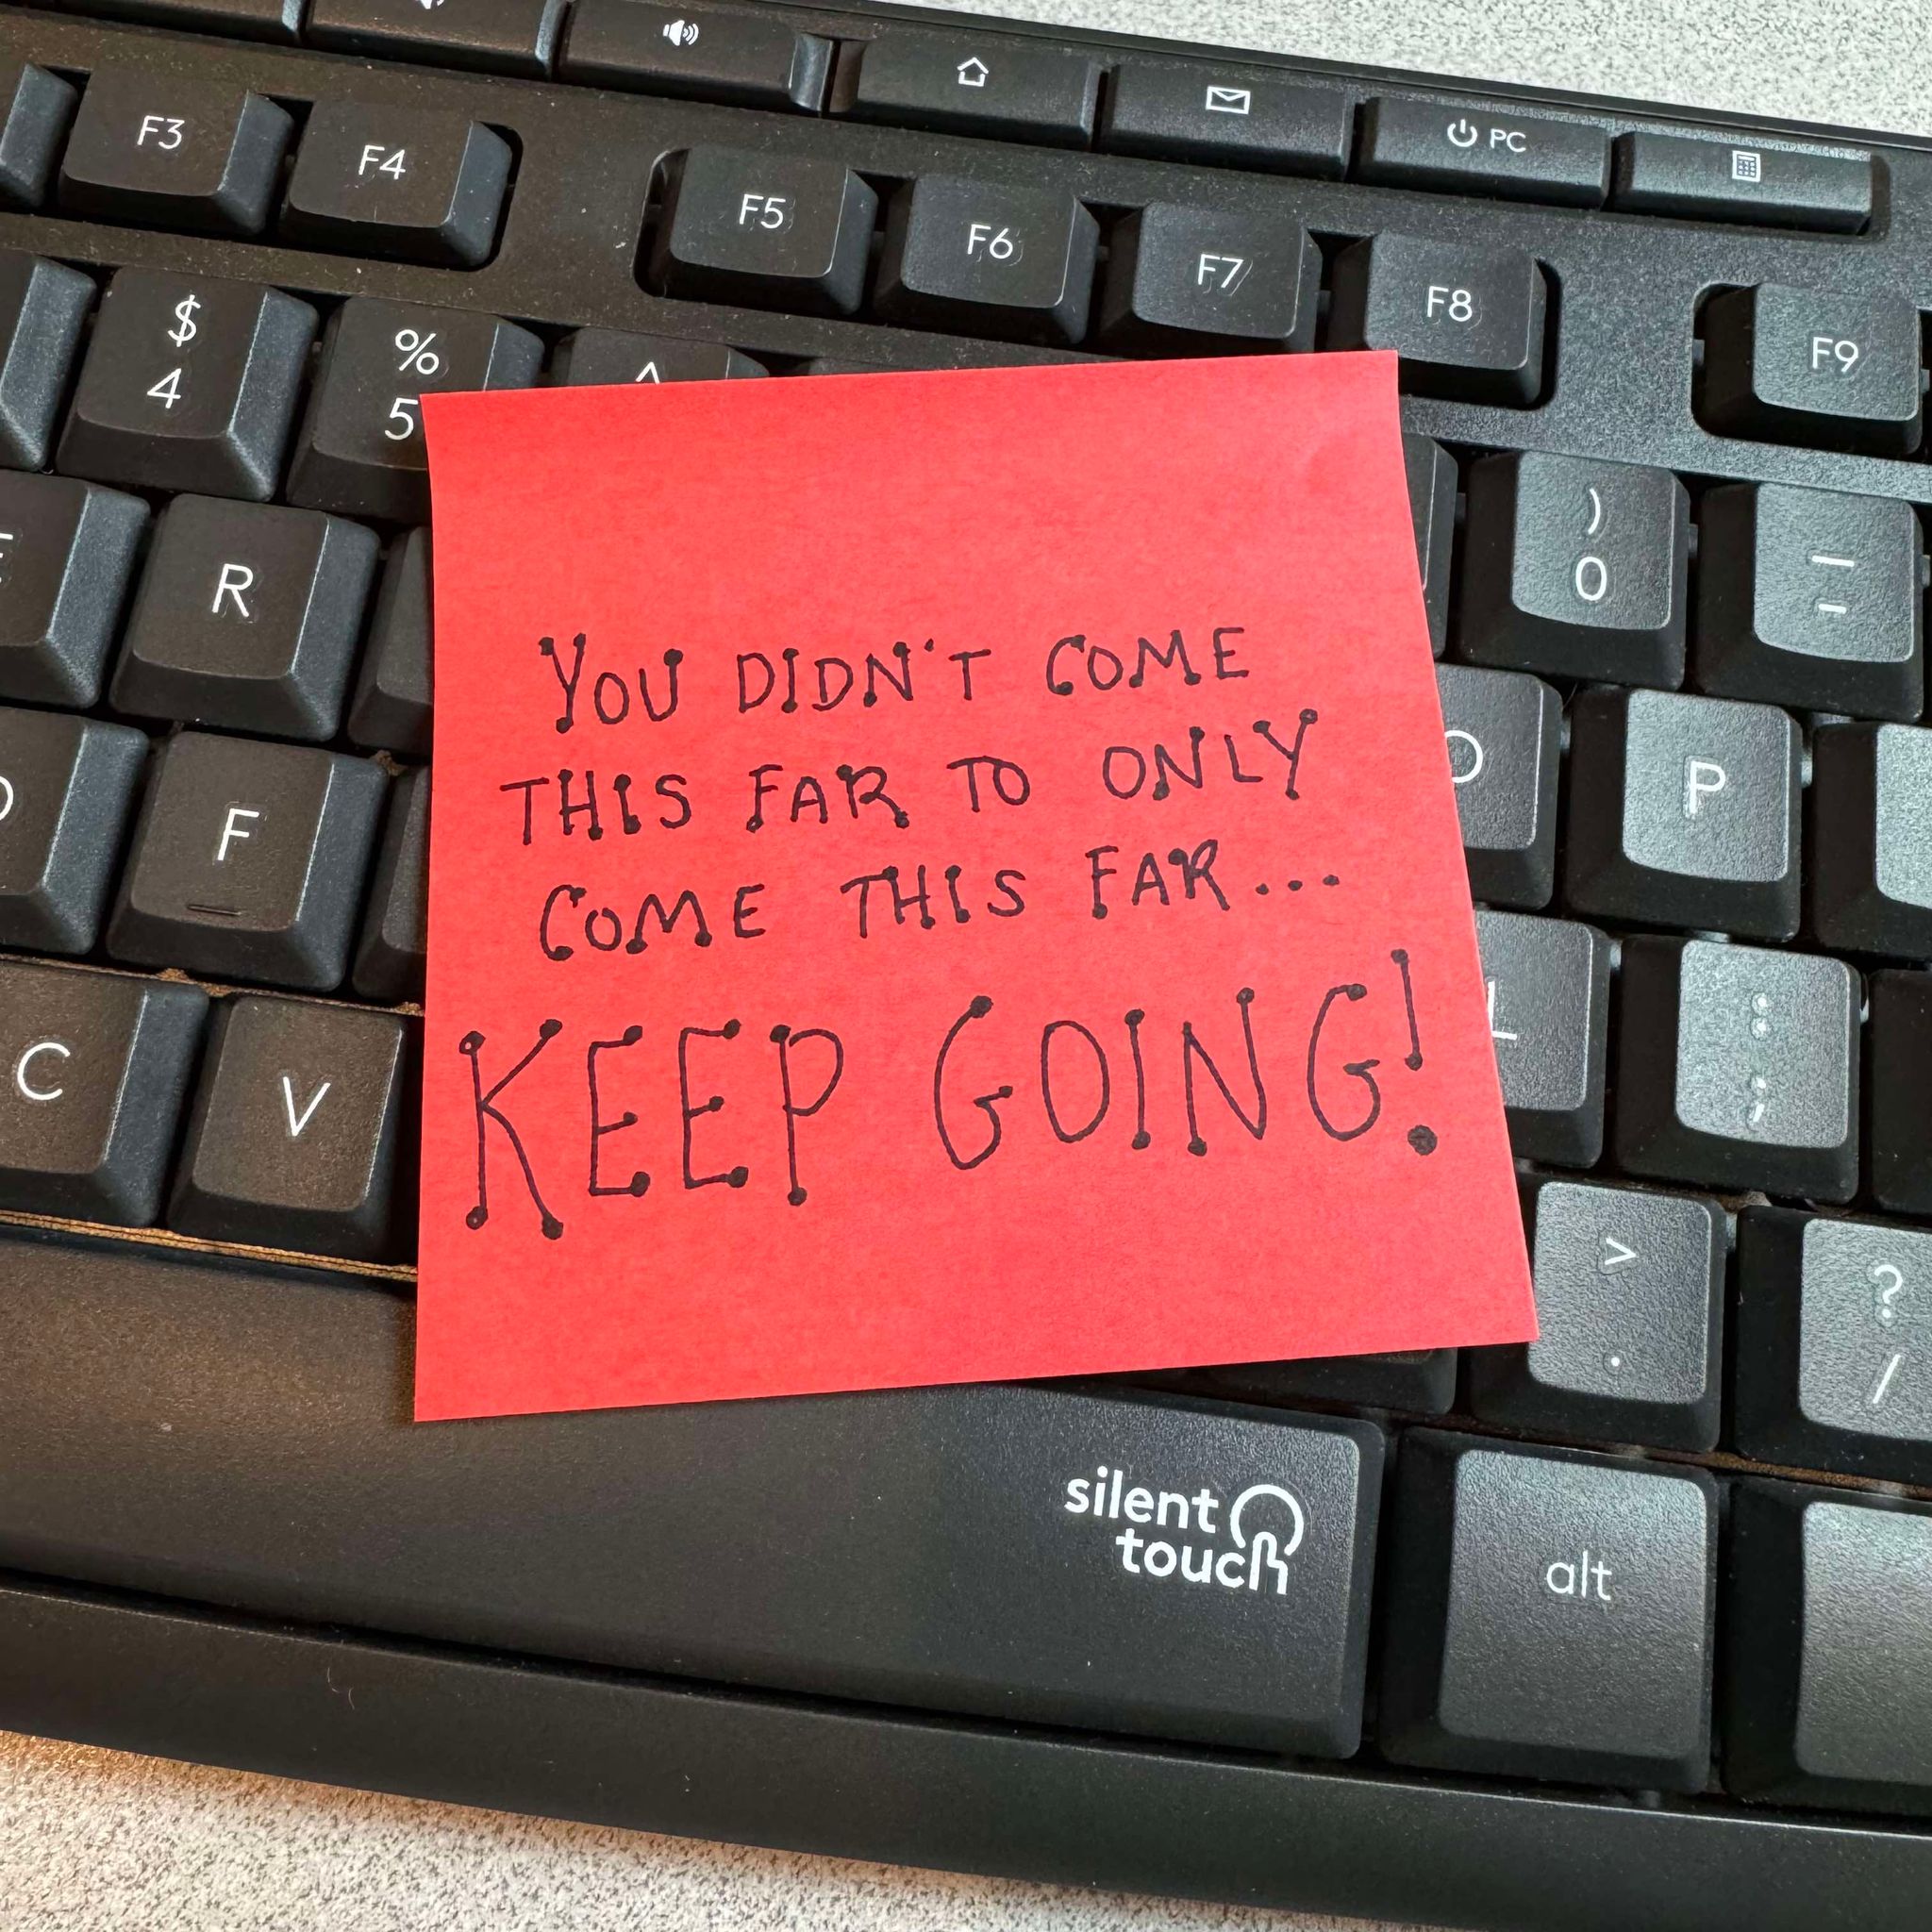 F3
F4
F5
F6
F7
F8
PC
F9
$
4
%
5
^
)
0
R
P
F
C
V
L
:
;
>
.
?
/
YOU DIDN'T COME
THIS FAR TO ONLY
COME THIS FAR...
KEEP GOING!
silent
touch
alt